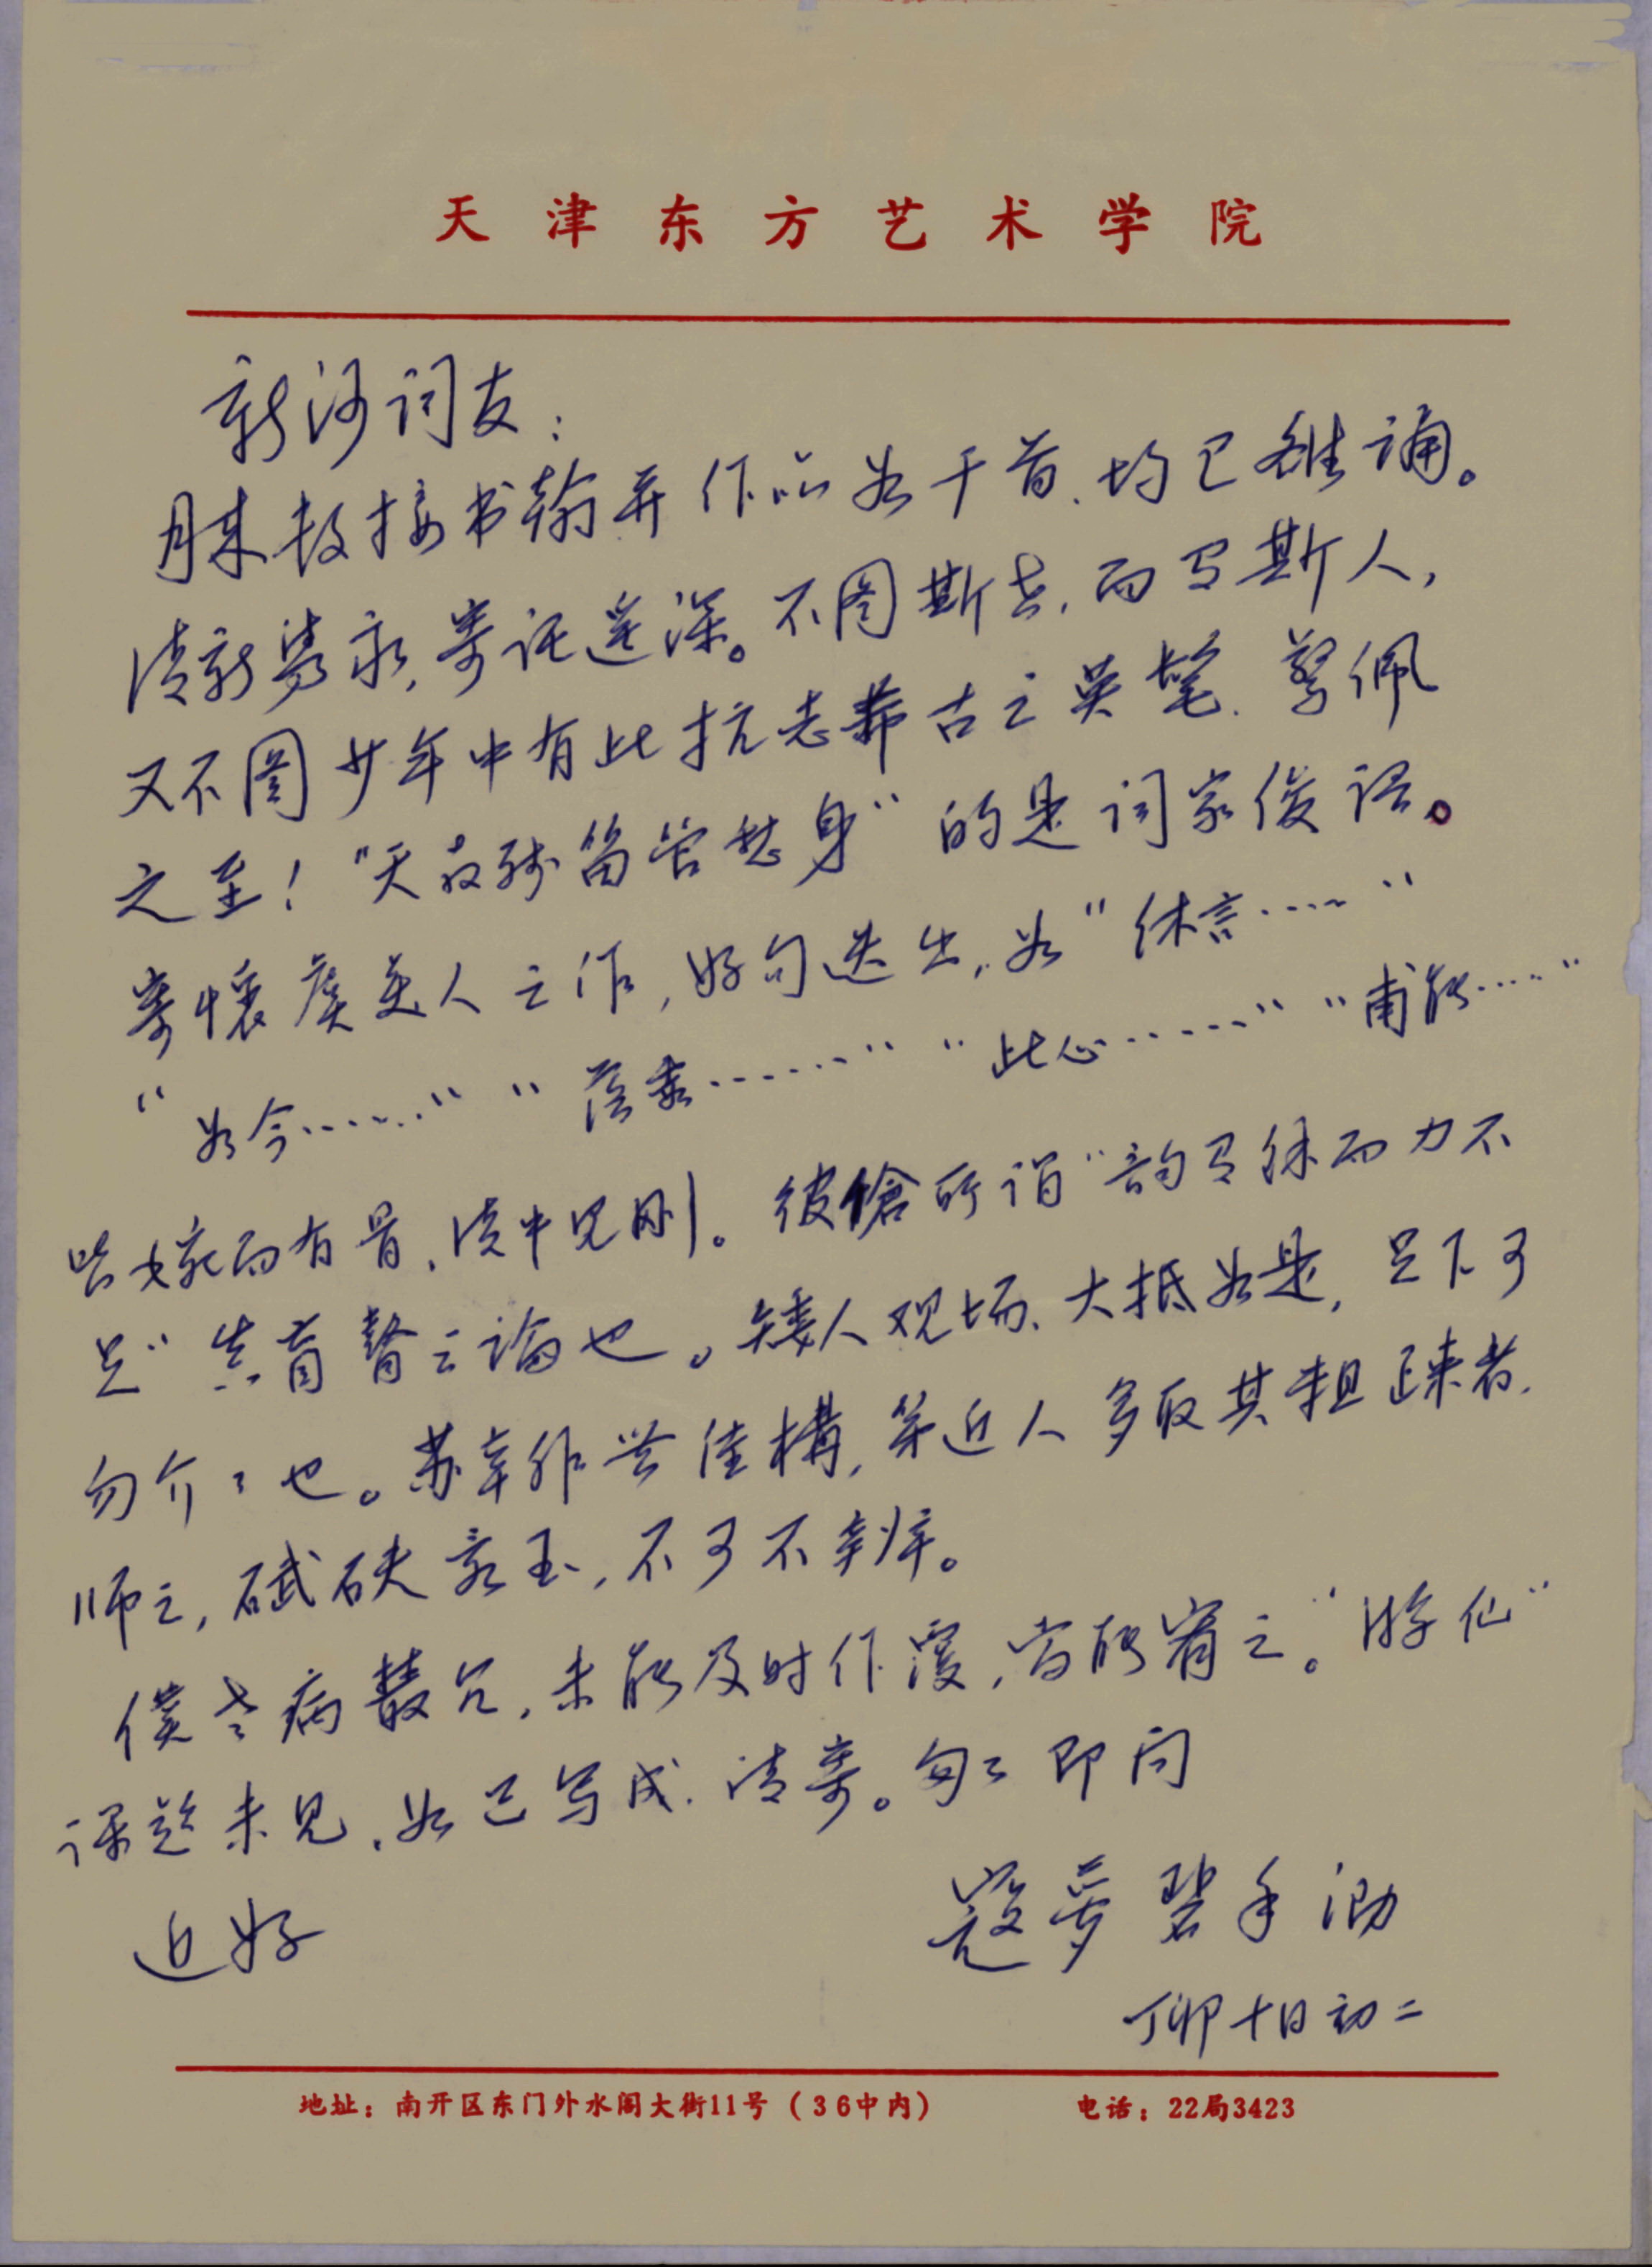 天津东方艺术学院
新河词友：
月来数接书翰并作品如干首，均已雒诵。
清新隽永，寄托遥深。不图斯世，而有斯人，
又不图少年中有此抗志希古之英髦，警佩
之至！“天教残笛管愁身”的是词家俊语。
寄怀虞美人之作，好句迭出，如“休言……”
“如今……”“落叶……”“此心……”“甫能……”
皆婉而有骨，淡中见刚。彼伧所谓“韵有余而力不
足”真盲瞽之论也。矮人观场，大抵如是，足下可
勿介々也。苏辛非无佳構，第近人多取其粗疎者
师之，碔砆乱玉，不可不辨。
僕老病薿冗，未能及时作覆，当能宥之。“游仙”
课题未见，如已写成，请寄。匆々即问
近好
寇梦碧手泐
丁卯十月初二
地址：南开区东门外水阁大街11号（36中内）
电话：22局3423